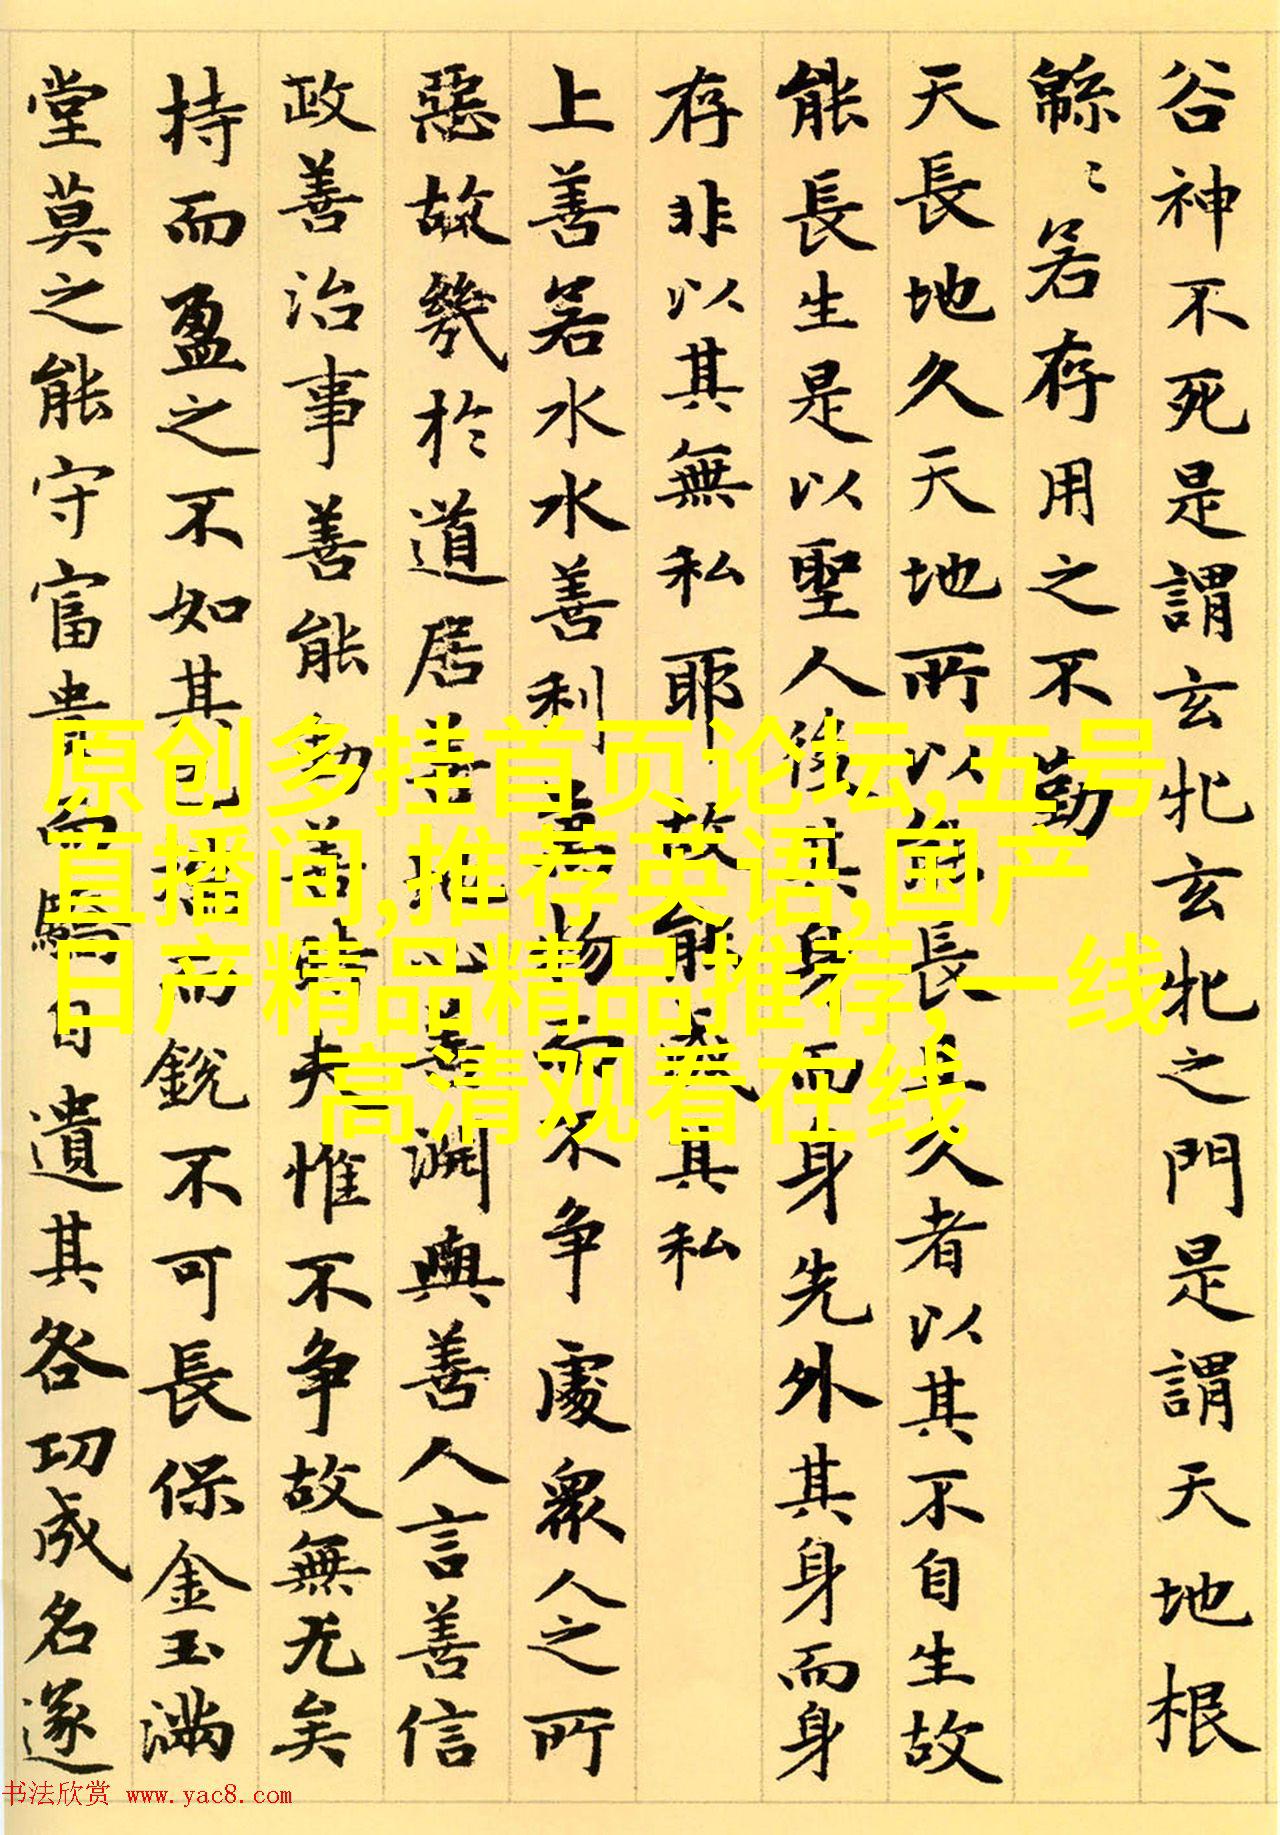 谷神不死是謂玄牝玄牝之門是謂天地根
緜〻若存用之不勤
天長地久天地所以能長且久者以其不自生故
能長生是以聖人後其身而身先外其身而身
存非以其無私耶故能成其私
上善若水水善利萬物而不争處衆人之所
惡故幾於道居善地心善淵與善人言善信
政善治事善能動善時夫惟不争故無尤矣
持而盈之不如其已揣而銳不可長保金玉满
堂莫之能守富貴而驕自遺其咎功成名遂
原创多挂首页论坛,五号
直播间,推荐英语,国产
日产精品精品推荐,一线
高清观看在线
书法欣赏 www.yac8.com